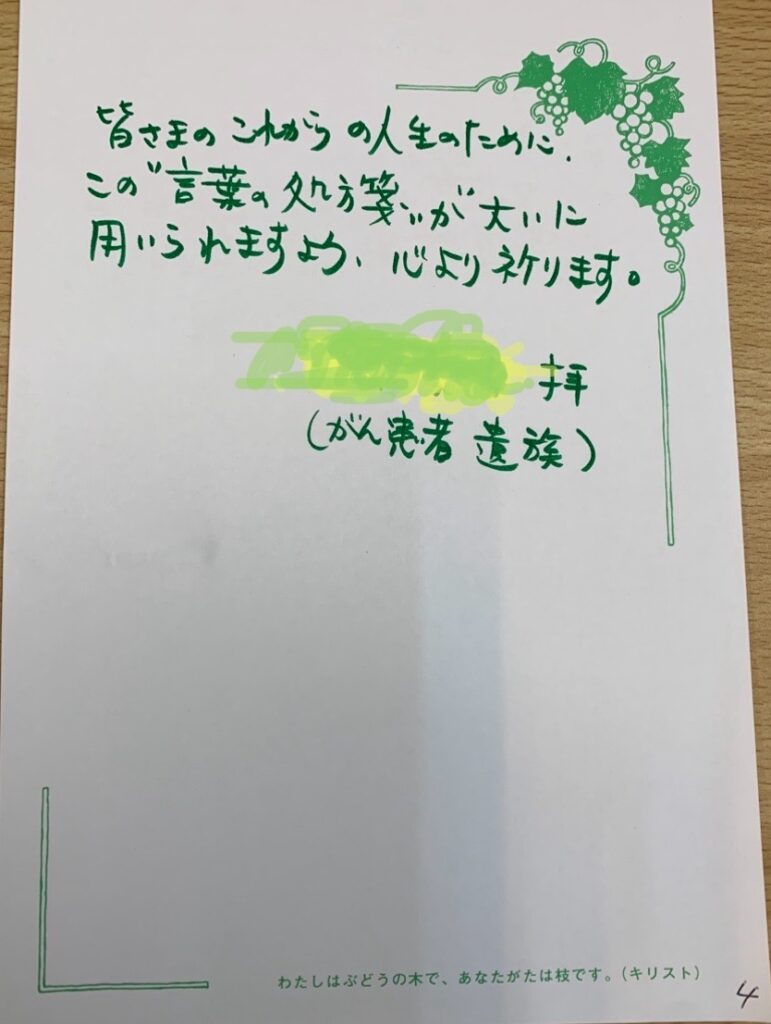 皆さまのこれからの人生のために、
この"言葉の処方箋"が大いに
用いられますよう、心より祈ります。
拝
(がん患者 遺族)
わたしはぶどうの木で、あなたがたは枝です。(キリスト)
4